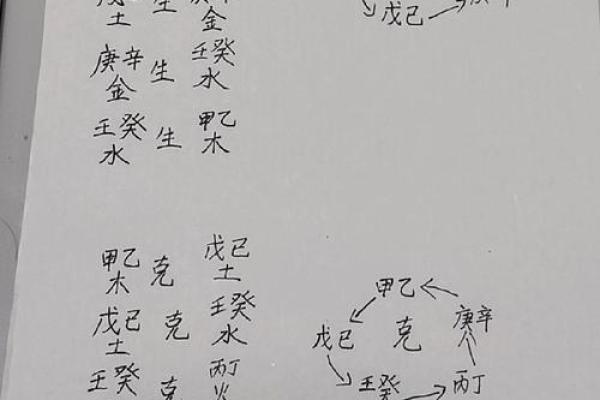 土 生 金
戊己
庚辛 生 壬癸
金 水
壬癸 生 甲乙
水 木
甲乙 克 戊己
木 土
戊己 克 壬癸
土 水
壬癸 克 丙丁
火
甲乙
庚辛
戊己 克
壬癸 丙丁